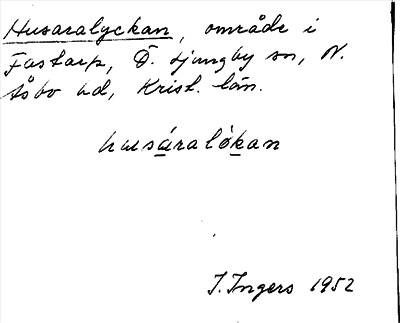 Husaralyckan, område i
Fastarp, Ö. Ljungby sn, N.
Åsbo hd, Krist. län.
husáralókan
I. Ingers 1952